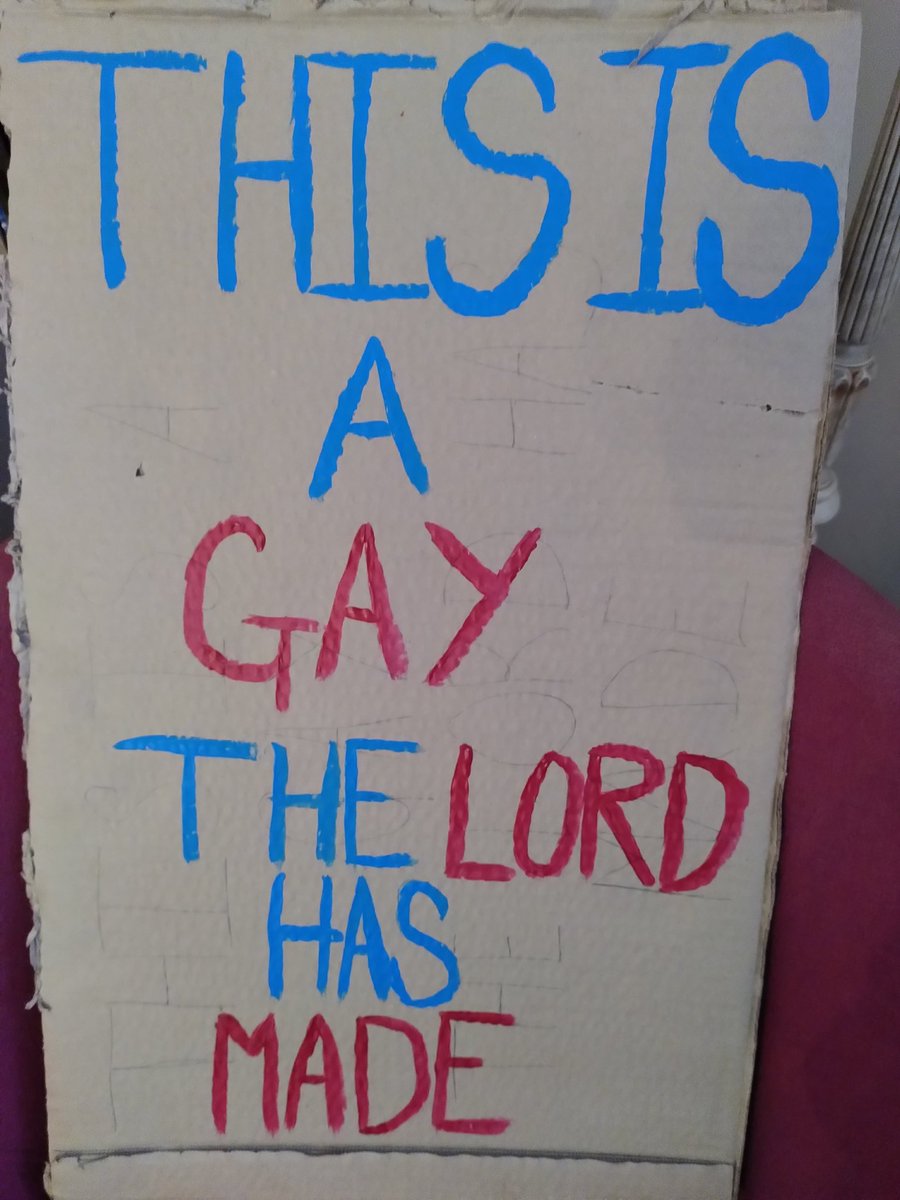 THIS IS
A
GAY
THE LORD
HAS
MADE